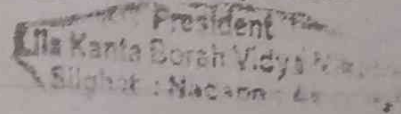 President
Lila Kanta Borah Vidya
Silghat : Nagaon